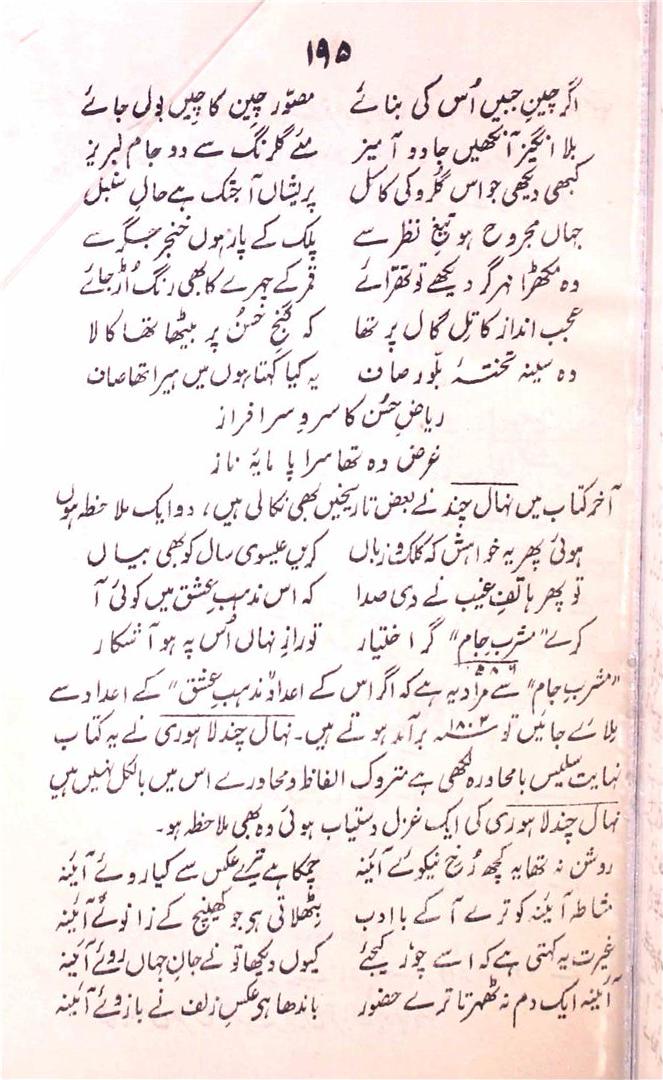 ۱۹۵
اگر چینِ جبیں اُس کی بنائے مصوّر چین کا چیں بول جائے
بلا انگیز آنکھیں جادو آمیز مئے گلرنگ سے دو جام لبریز
کبھی دیکھی جو اس گلرو کی کاکل پریشاں آجتک ہے حالِ سنبل
جہاں مجروح ہو تیغِ نظر سے پلک کے پار ہوں خنجر جگر سے
وہ مکھڑا مہر گر دیکھے تو تھرّائے قمر کے چہرے کا بھی رنگ اُڑ جائے
عجب انداز کا تِل گال پر تھا کہ گنجِ حُسن پر بیٹھا تھا کالا
وہ سینہ تختۂ بلّور صاف یہ کیا کہتا ہوں میں ہیرا تھا صاف
ریاضِ حُسن کا سروِ سرافراز
غرض وہ تھا سراپا مایۂ ناز
آخر کتاب میں نہال چند نے بعض تاریخیں بھی نکالی ہیں، دو ایک ملاحظہ ہوں
ہوئی پھر یہ خواہش کہ کلک و زباں کریں عیسوی سال کو بھی بیاں
تو پھر ہاتفِ غیب نے دی صدا کہ اس مذہبِ عشق میں کوئی آ
کرے "مشربِ جام" گر اختیار تو رازِ نہاں اُس پہ ہو آشکار
۵۸۶
"مشربِ جام" سے مراد یہ ہے کہ اگر اس کے اعداد "مذہبِ عشق" کے اعداد سے
ملائے جائیں تو ۱۸۰۳ء برآمد ہوتے ہیں۔ نہال چند لاہوری نے یہ کتاب
نہایت سلیس بامحاورہ لکھی ہے متروک الفاظ و محاورے اس میں بالکل نہیں ہیں
نہال چند لاہوری کی ایک غزل دستیاب ہوئی وہ بھی ملاحظہ ہو۔
روشن نہ تھا یہ کچھ رُخِ نیکوئے آئینہ چمکا ہے تیرے عکس سے کیا روئے آئینہ
مشاطہ آئینہ کو ترے آ کے باادب بٹھلاتی ہی جو کھینچ کے زانوئے آئینہ
غیرت یہ کہتی ہے کہ اسے چور کیجئے کیوں دیکھا تو نے جانِ جہاں روئے آئینہ
آئینہ ایک دم نہ ٹھہرتا ترے حضور باندھا ہی عکسِ زلف نے بازوئے آئینہ